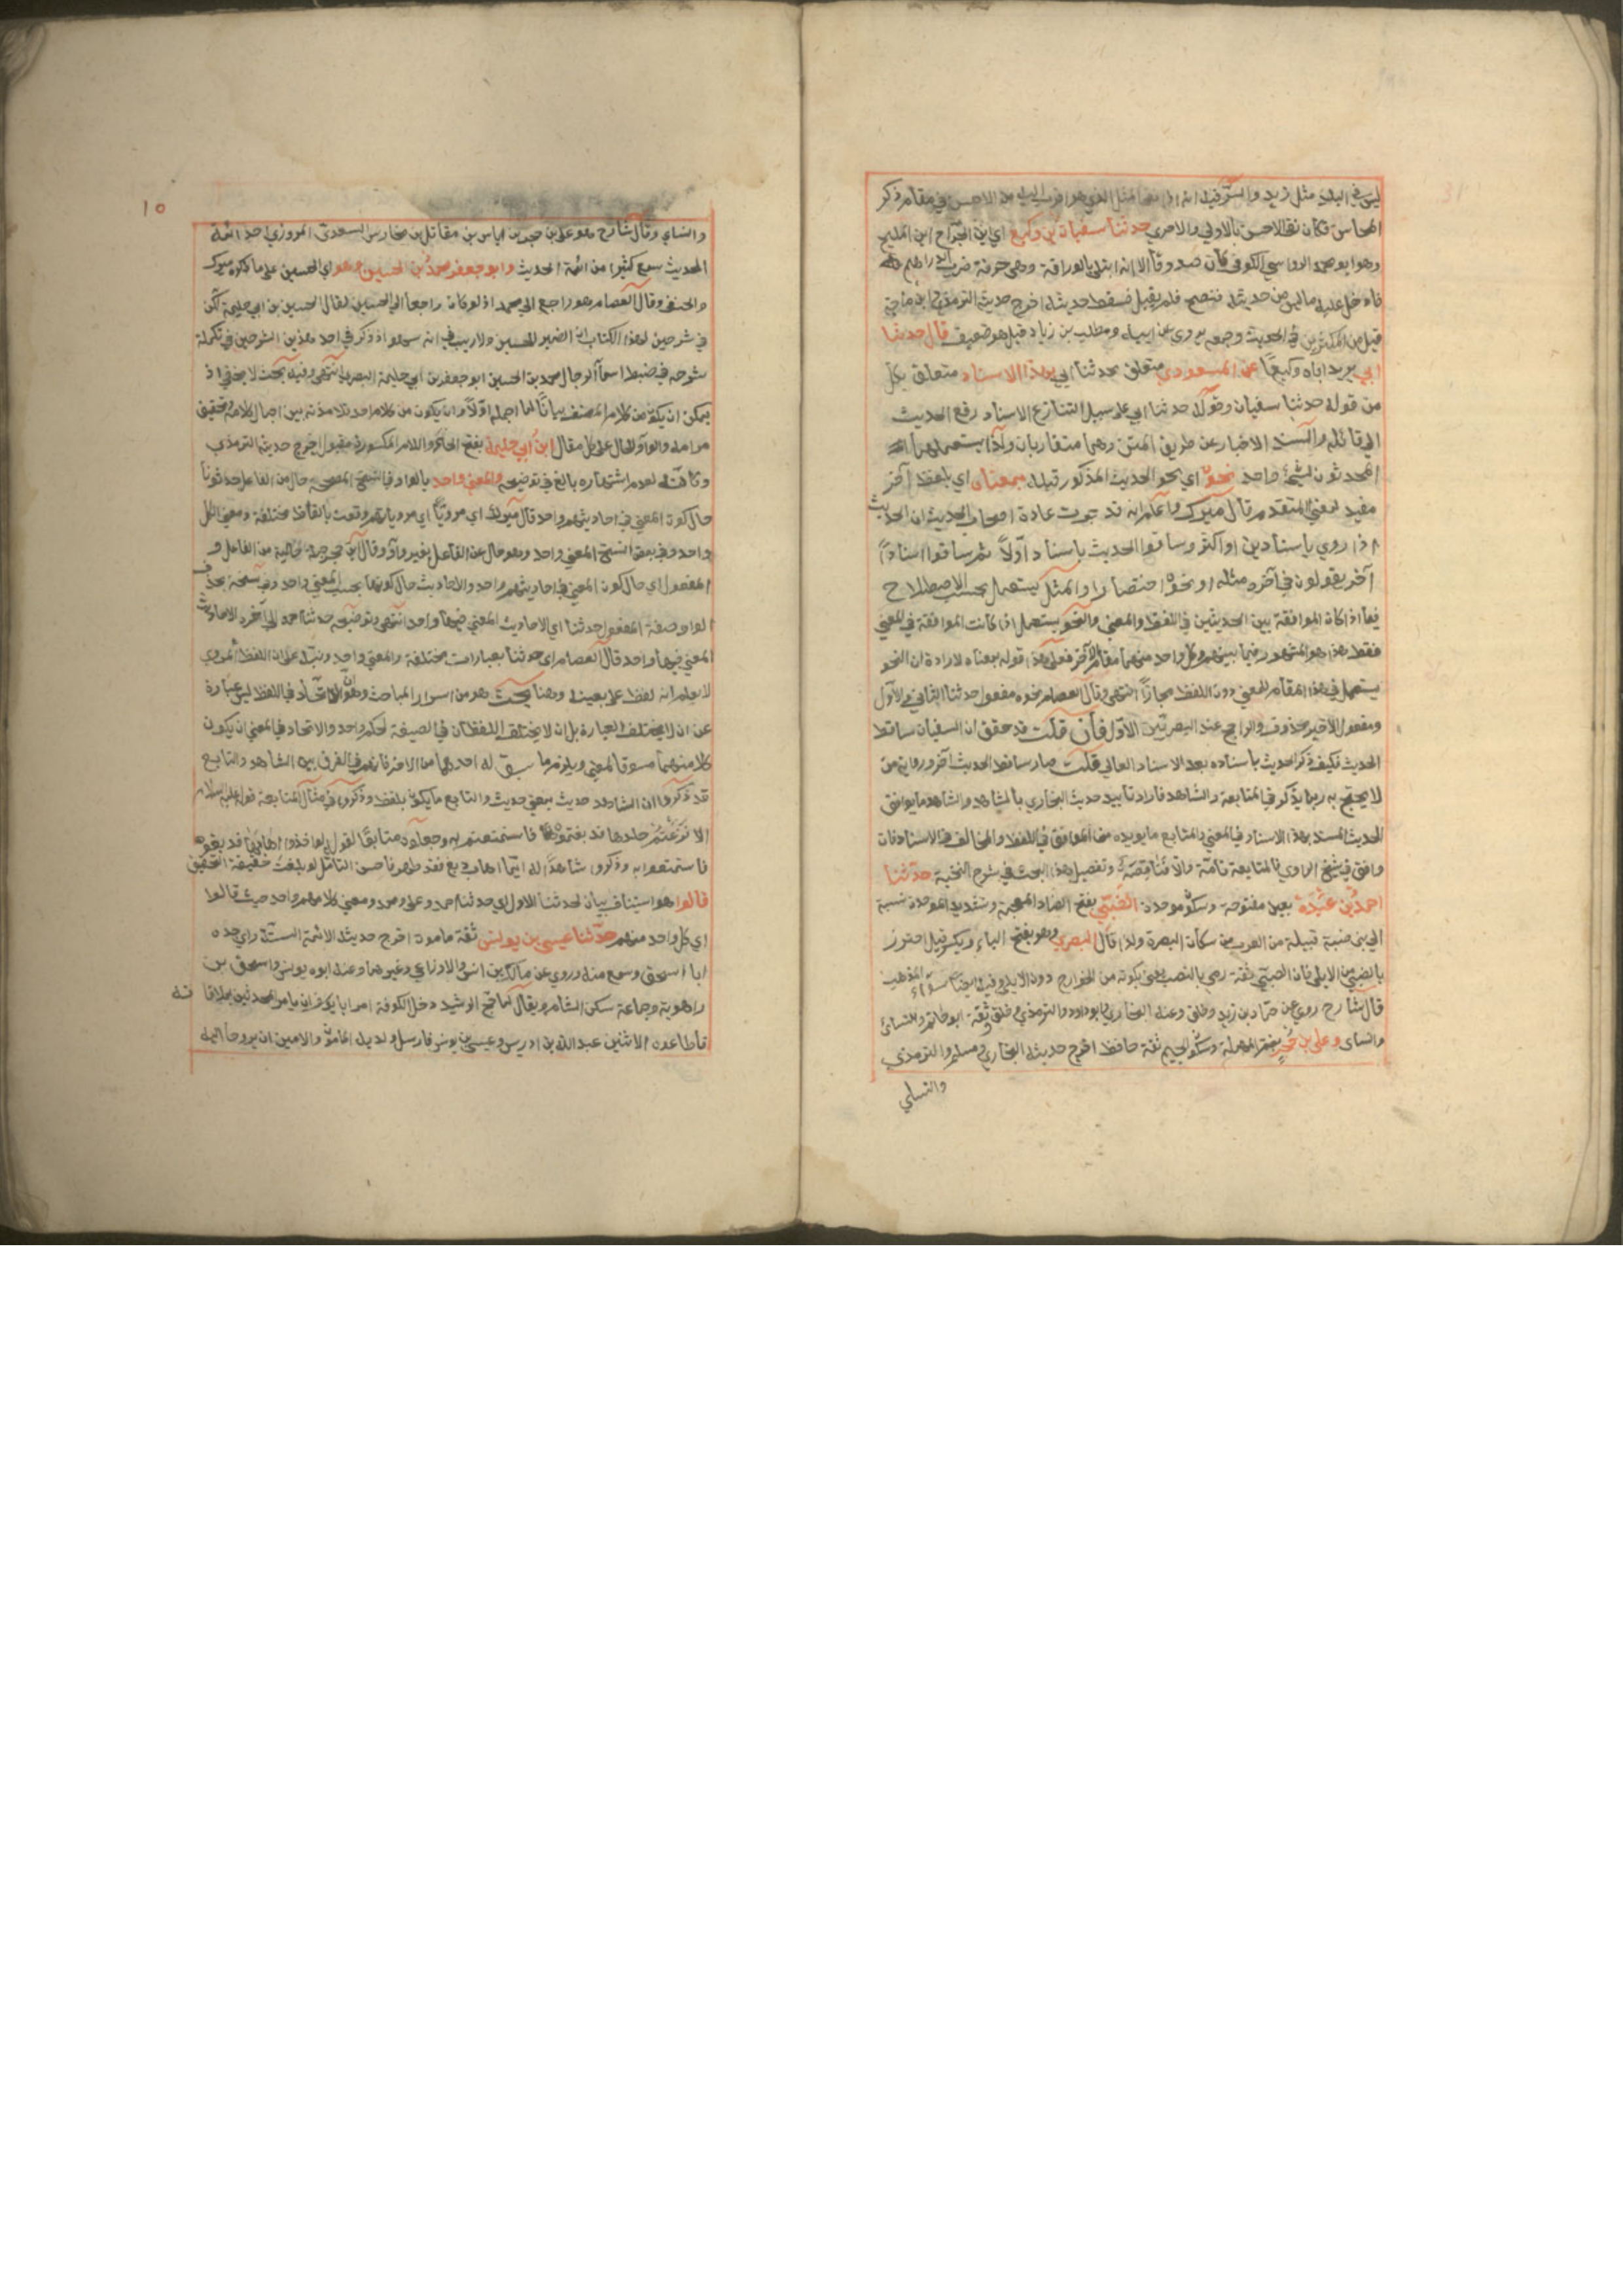 ليس في البلد مثل زيد والسر فيه انه اذا نفى المثل الذي هو اقرب اليه من الاحسن في مقام ذكر
المحاسن فكان نفي الاحسن بالاولى والاحرى حدثنا سفيان بن وكيع اي ابن الجراح ابن المليح
وهو ابو محمد الرواسي الكوفي كان صدوقا الا انه ابتلي بالوراقة وهي حرفة
فادخل عليه ما ليس من حديثه فنصح فلم يقبل فسقط حديثه اخرج حديثه الترمذي وابن ماجة
قيل من المكثرين في الحديث وجمعه يروى عن ابيه ومطلب بن زياد قيل هو ضعيف قال حدثنا
ابي يريد اباه وكيعا عن المسعودي متعلق بحدثنا ابي بهذا الاسناد متعلق بكل
من قوله حدثنا سفيان وقوله حدثنا ابي على سبيل التنازع الاسناد رفع الحديث
الى قائله والسند الاخبار عن طريق المتن وهما متقاربان ولذا يستعملهما
المحدثون لشيء واحد نحوه اي نحو الحديث المذكور قبله بمعناه اي بلفظ آخر
مفيد لمعنى المتقدم قال ميرك واعلم انه قد جرت عادة اصحاب الحديث ان الحديث
اذا روي باسنادين او اكثر وساقوا الحديث باسناد اولا ثم ساقوا اسنادا
آخر يقولون في آخره مثله او نحوه اختصارا والمثل يستعمل بحسب الاصطلاح
فيما اذا كانت الموافقة بين الحديثين في اللفظ والمعنى والنحو يستعمل اذا كانت الموافقة في المعنى
فقط هذا هو المشهور فيما بينهم وكل واحد منهما مقام الآخر فعلى هذا قوله بمعناه لارادة ان النحو
يستعمل في هذا المقام للمعنى دون اللفظ مجازا انتهى وقال العصام نحوه مفعول حدثنا الثاني او الاول
ومفعول الاخير محذوف والراجح عند البصريين الاول فان قلت قد حقق ان السفيان ساقط
الحديث فكيف ذكر الحديث باسناده بعد الاسناد العالي قلت صار ساقط الحديث آخرا ورواية من
لا يحتج به ربما يذكر في المتابعة والشاهد فاراد تاييد حديث البخاري بالشاهد والشاهد ما يوافق
الحديث المسند بهذا الاسناد في المعنى والمتابع ما يؤيده مما الموافق في اللفظ والمخالف في الاسناد فان
وافق في شيخ الراوي فالمتابعة تامة والا فناقصة وتفصيل هذا البحث في شرح النخبة حدثنا
احمد بن عبدة بعين مفتوحة وسكون موحدة الضبي بفتح الضاد المعجمة وتشديد الموحدة نسبة
الى بني ضبة قبيلة من العرب من سكان البصرة ولذا قال البصري وهو بفتح الباء ويكسر قيل احترز
بالضبي من الايلي فان الضبي ثقة رمي بالنصب يعني بكونه من الخوارج دون الايلي
قال شارح روى عن حماد بن زيد وخلق وعنه البخاري وابو داود والترمذي وخلق وثقة ابو حاتم والنسائي
والنسائي وعلي بن حجر بضم المهملة وسكون الجيم ثقة حافظ اخرج حديثه البخاري ومسلم والترمذي
والنسائي
١٥
والنسائي وقال شارح هو علي بن حجر بن اياس بن مقاتل بن مخارس السعدي المروزي احد ائمة
الحديث سمع كثيرا من ائمة الحديث وابو جعفر محمد بن الحسين وهو اي الحسين على ما ذكره ميرك
والحنفي وقال العصام هو راجع الى محمد اذ لو كان راجعا الى الحسين لقال الحسين بن ابي حليمة لكن
في شرحين لهذا الكتاب ان الضمير للحسين ولا ريب في انه سهو اذ ذكر في احد هذين الشرحين في تكملة
شرحه في ضبط اسماء الرجال محمد بن الحسين ابو جعفر بن ابي حليمة البصري انتهى وفيه بحث لا يخفى اذ
يمكن ان يكون من كلام المصنف بيانا لما اجمله اولا وان يكون من كلام احد تلامذته بين اجمال كلامه وتحقيق
مرامه والواو للحال على كل مقال ابن ابي حليمة بفتح الحاء واللام المكسورة مقبول اخرج حديثه الترمذي
وكانه لعدم اشتهاره بالغ في توضيحه والمعنى واحد بالواو في النسخ المصححة حال من الفاعل حدثونا
حال كون المعنى في احاديثهم واحد قال ميرك اي مرويا اي مروياتهم وقعت بالفاظ مختلفة ومعنى الكل
واحد وفي بعض النسخ المعنى واحد وهو حال عن الفاعل بغير واو وقال ابن حجر جملة حالية من الفاعل و
المفعول اي حال كون المعنى في احاديثهم واحد والاحاديث حال كونها بحسب المعنى واحد وفي نسخة بحذف
الواو صفة المفعول حدثنا اي الاحاديث المعنى فيها واحد انتهى وتوضيحه حدثنا احمد الى آخره الاحاديث
المعنى فيها واحد قال العصام اي حدثنا بعبارات مختلفة والمعنى واحد ونبه على ان اللفظ المروي
لا يعلم انه لفظ على بعينه وهنا بحث هو من اسرار المباحث وهو ان الاتحاد في اللفظ ليس عبارة
عن ان لا يختلف العبارة بل ان لا يختلف اللفظان في الصيغة لحكم واحد والاتحاد في المعنى ان يكون
كلا منهما مسوقا لمعنى ويلزم ما سبق له احدهما من الاخر فانهم في الفرق بين الشاهد والتابع
قد ذكروا ان الشاهد حديث بمعنى حديث والتابع ما يكون بلفظه وذكروا في مثال المتابعة قوله عليه السلام
الا نزعتم جلدها فدبغتموه فاستمتعتم به وجعلوه متابعا لقوله لو اخذوا اهابها فدبغوه
فاستمتعوا به وذكروا شاهدا له ايما اهاب دبغ فقد طهر فاحسن التامل لو بلغت حقيقة التحقيق
قالوا هو استيناف بيان لحدثنا الاول اي حدثنا احمد وعلي ومحمد ومعنى كلامهم واحد حيث قالوا
اي كل واحد منهم حدثنا عيسى بن يونس ثقة مامون اخرج حديثه الائمة الستة راى جده
ابا اسحق وسمع منه وروى عن مالك بن انس والاوزاعي وغيرهما وعنه ابوه يونس واسحق بن
راهويه وجماعة سكن الشام ويقال لما حج الرشيد دخل الكوفة امر ابا يوسف ان يامر المحدثين بملاقاته
فاطاعوه الا اثنين عبد الله بن ادريس وعيسى بن يونس فارسل ولديه المامون والامين ان يروحا اليه